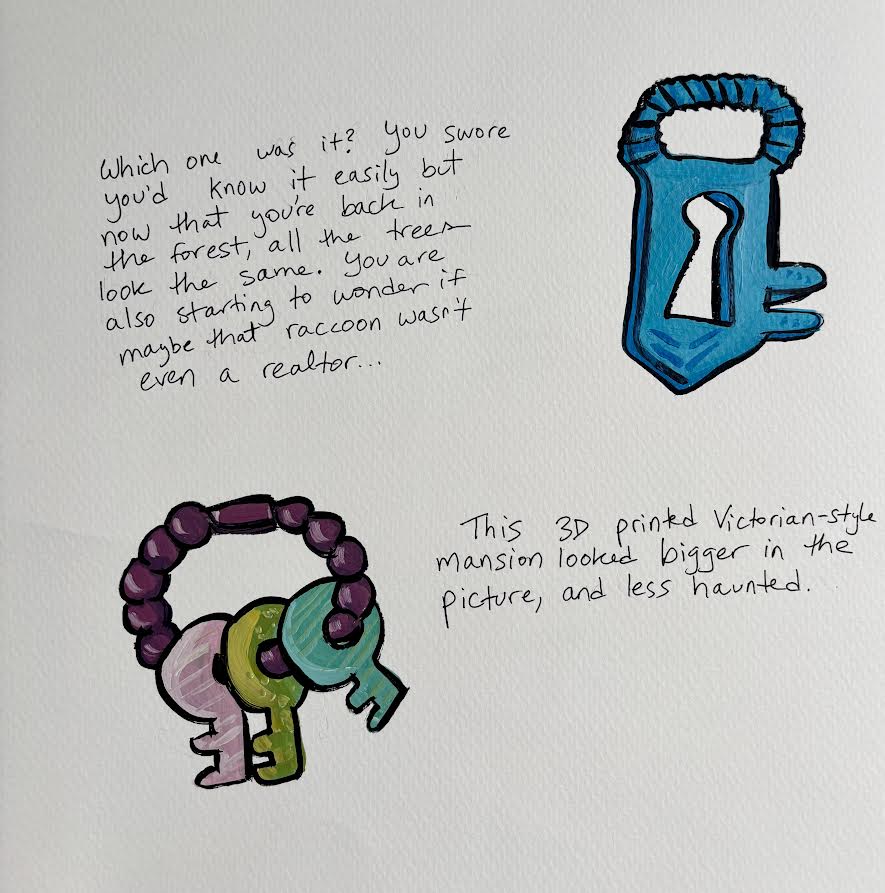 Which one was it? You swore
you'd know it easily but
now that you're back in
the forest, all the trees
look the same. You are
also starting to wonder if
maybe that raccoon wasn't
even a realtor...
This 3D printed Victorian-style
mansion looked bigger in the
picture, and less haunted.